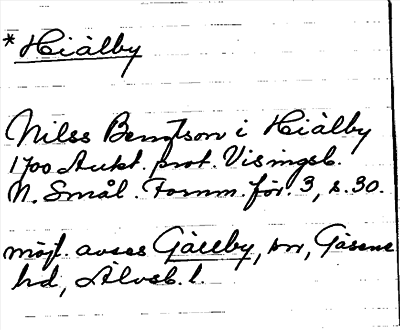 * Hiälby
Nilss Bengtson i Hiälby
1700 Aukt. prot. Visingsb.
N. Smål. Fornm. för. 3, s. 30.
möjl. avses Gäreby, sn, Gäsene
hd, Älvsb. l.